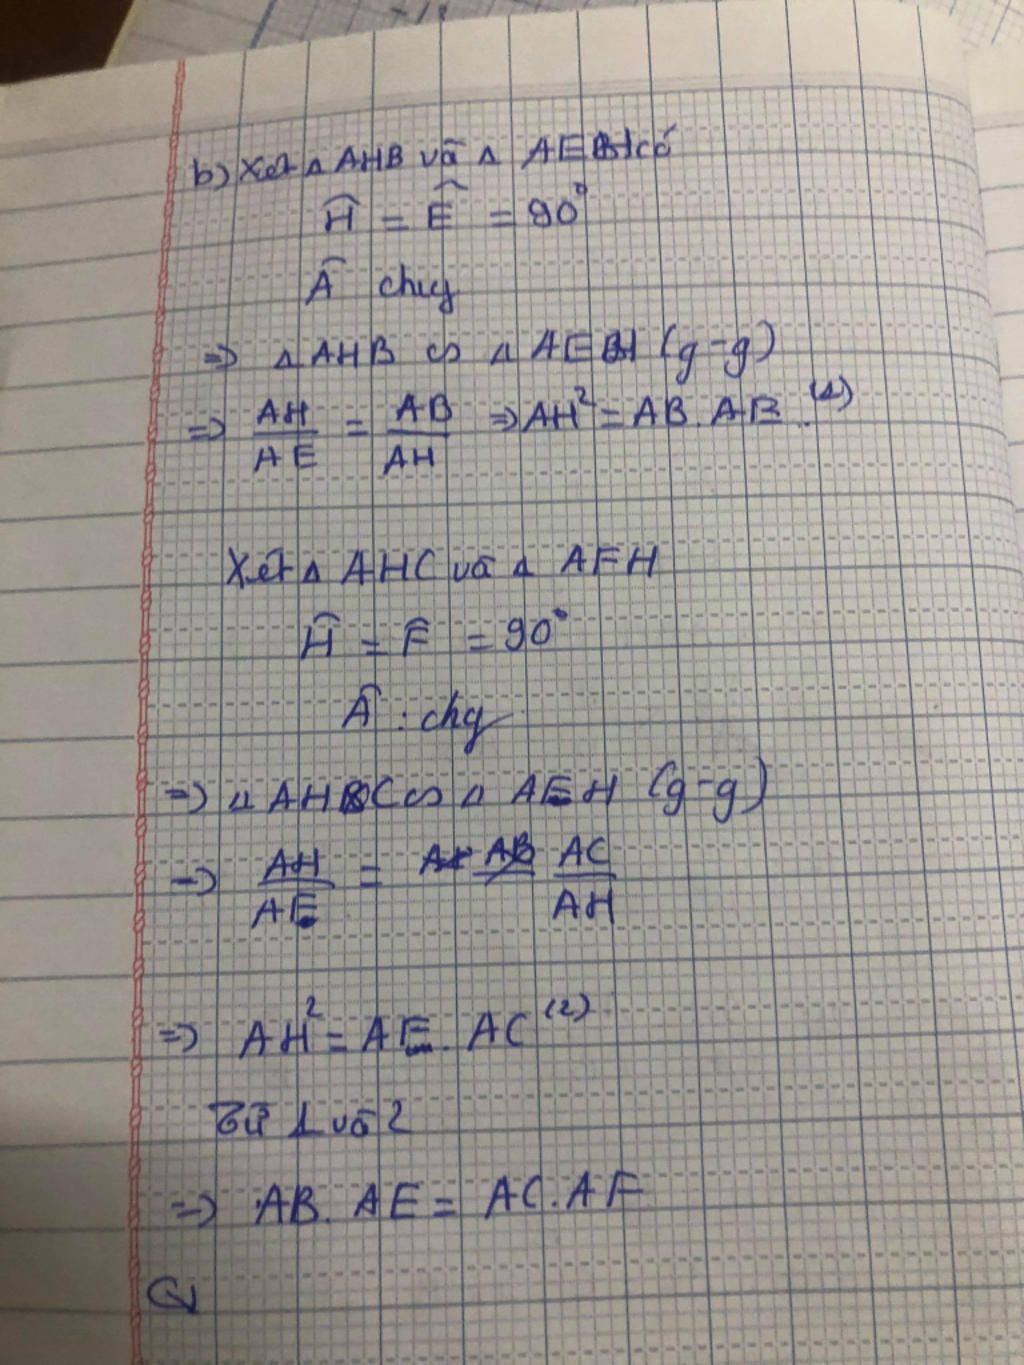 b) Xét Δ AHB và Δ AEH có
Ĥ = Ê = 90°
Â chung
⇒ Δ AHB ∽ Δ AEH (g-g)
⇒ AH/AE = AB/AH ⇒ AH² = AB. AE. (1)
Xét Δ AHC và Δ AFH
Ĥ = F̂ = 90°
Â : chg
⇒ Δ AHC ∽ Δ AEH (g-g)
⇒ AH/AE = AC/AH
⇒ AH² = AE. AC (2)
Từ 1 và 2
⇒ AB. AE = AC. AF